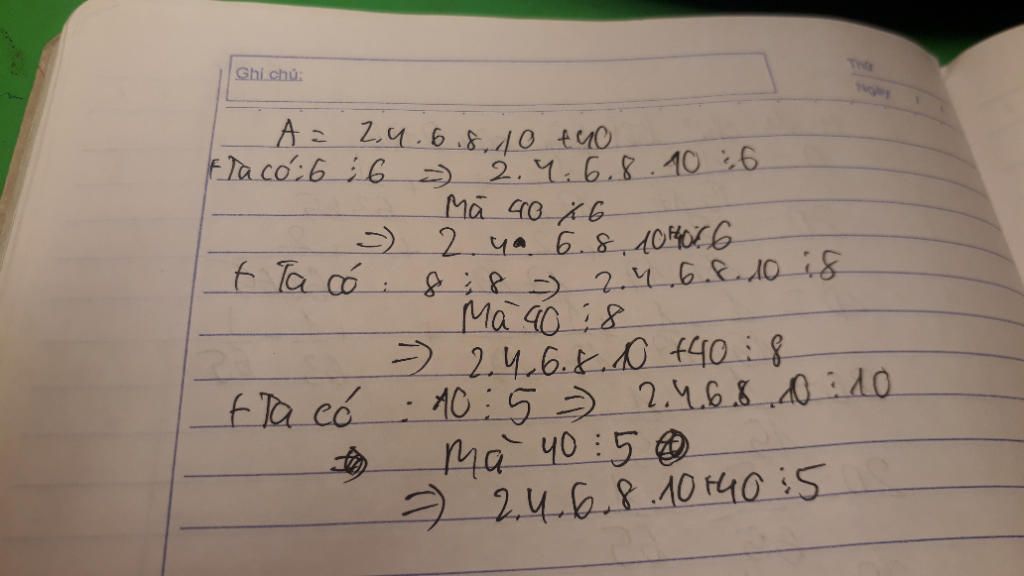 Ghi chú:
Thứ
Ngày
A = 2.4.6.8.10 +40
+Ta có:6 ⋮6 => 2.4.6.8.10 ⋮6
Mà 40 ⋮̸ 6
=> 2.4. 6.8.10+40⋮̸6
+ Ta có : 8 ⋮8 => 2.4.6.8.10 ⋮8
Mà 40 ⋮8
=> 2.4.6.8.10 +40 ⋮8
+Ta có : 10 ⋮5 => 2.4.6.8.10 ⋮10
Mà 40 ⋮5
=> 2.4.6.8.10+40 ⋮5